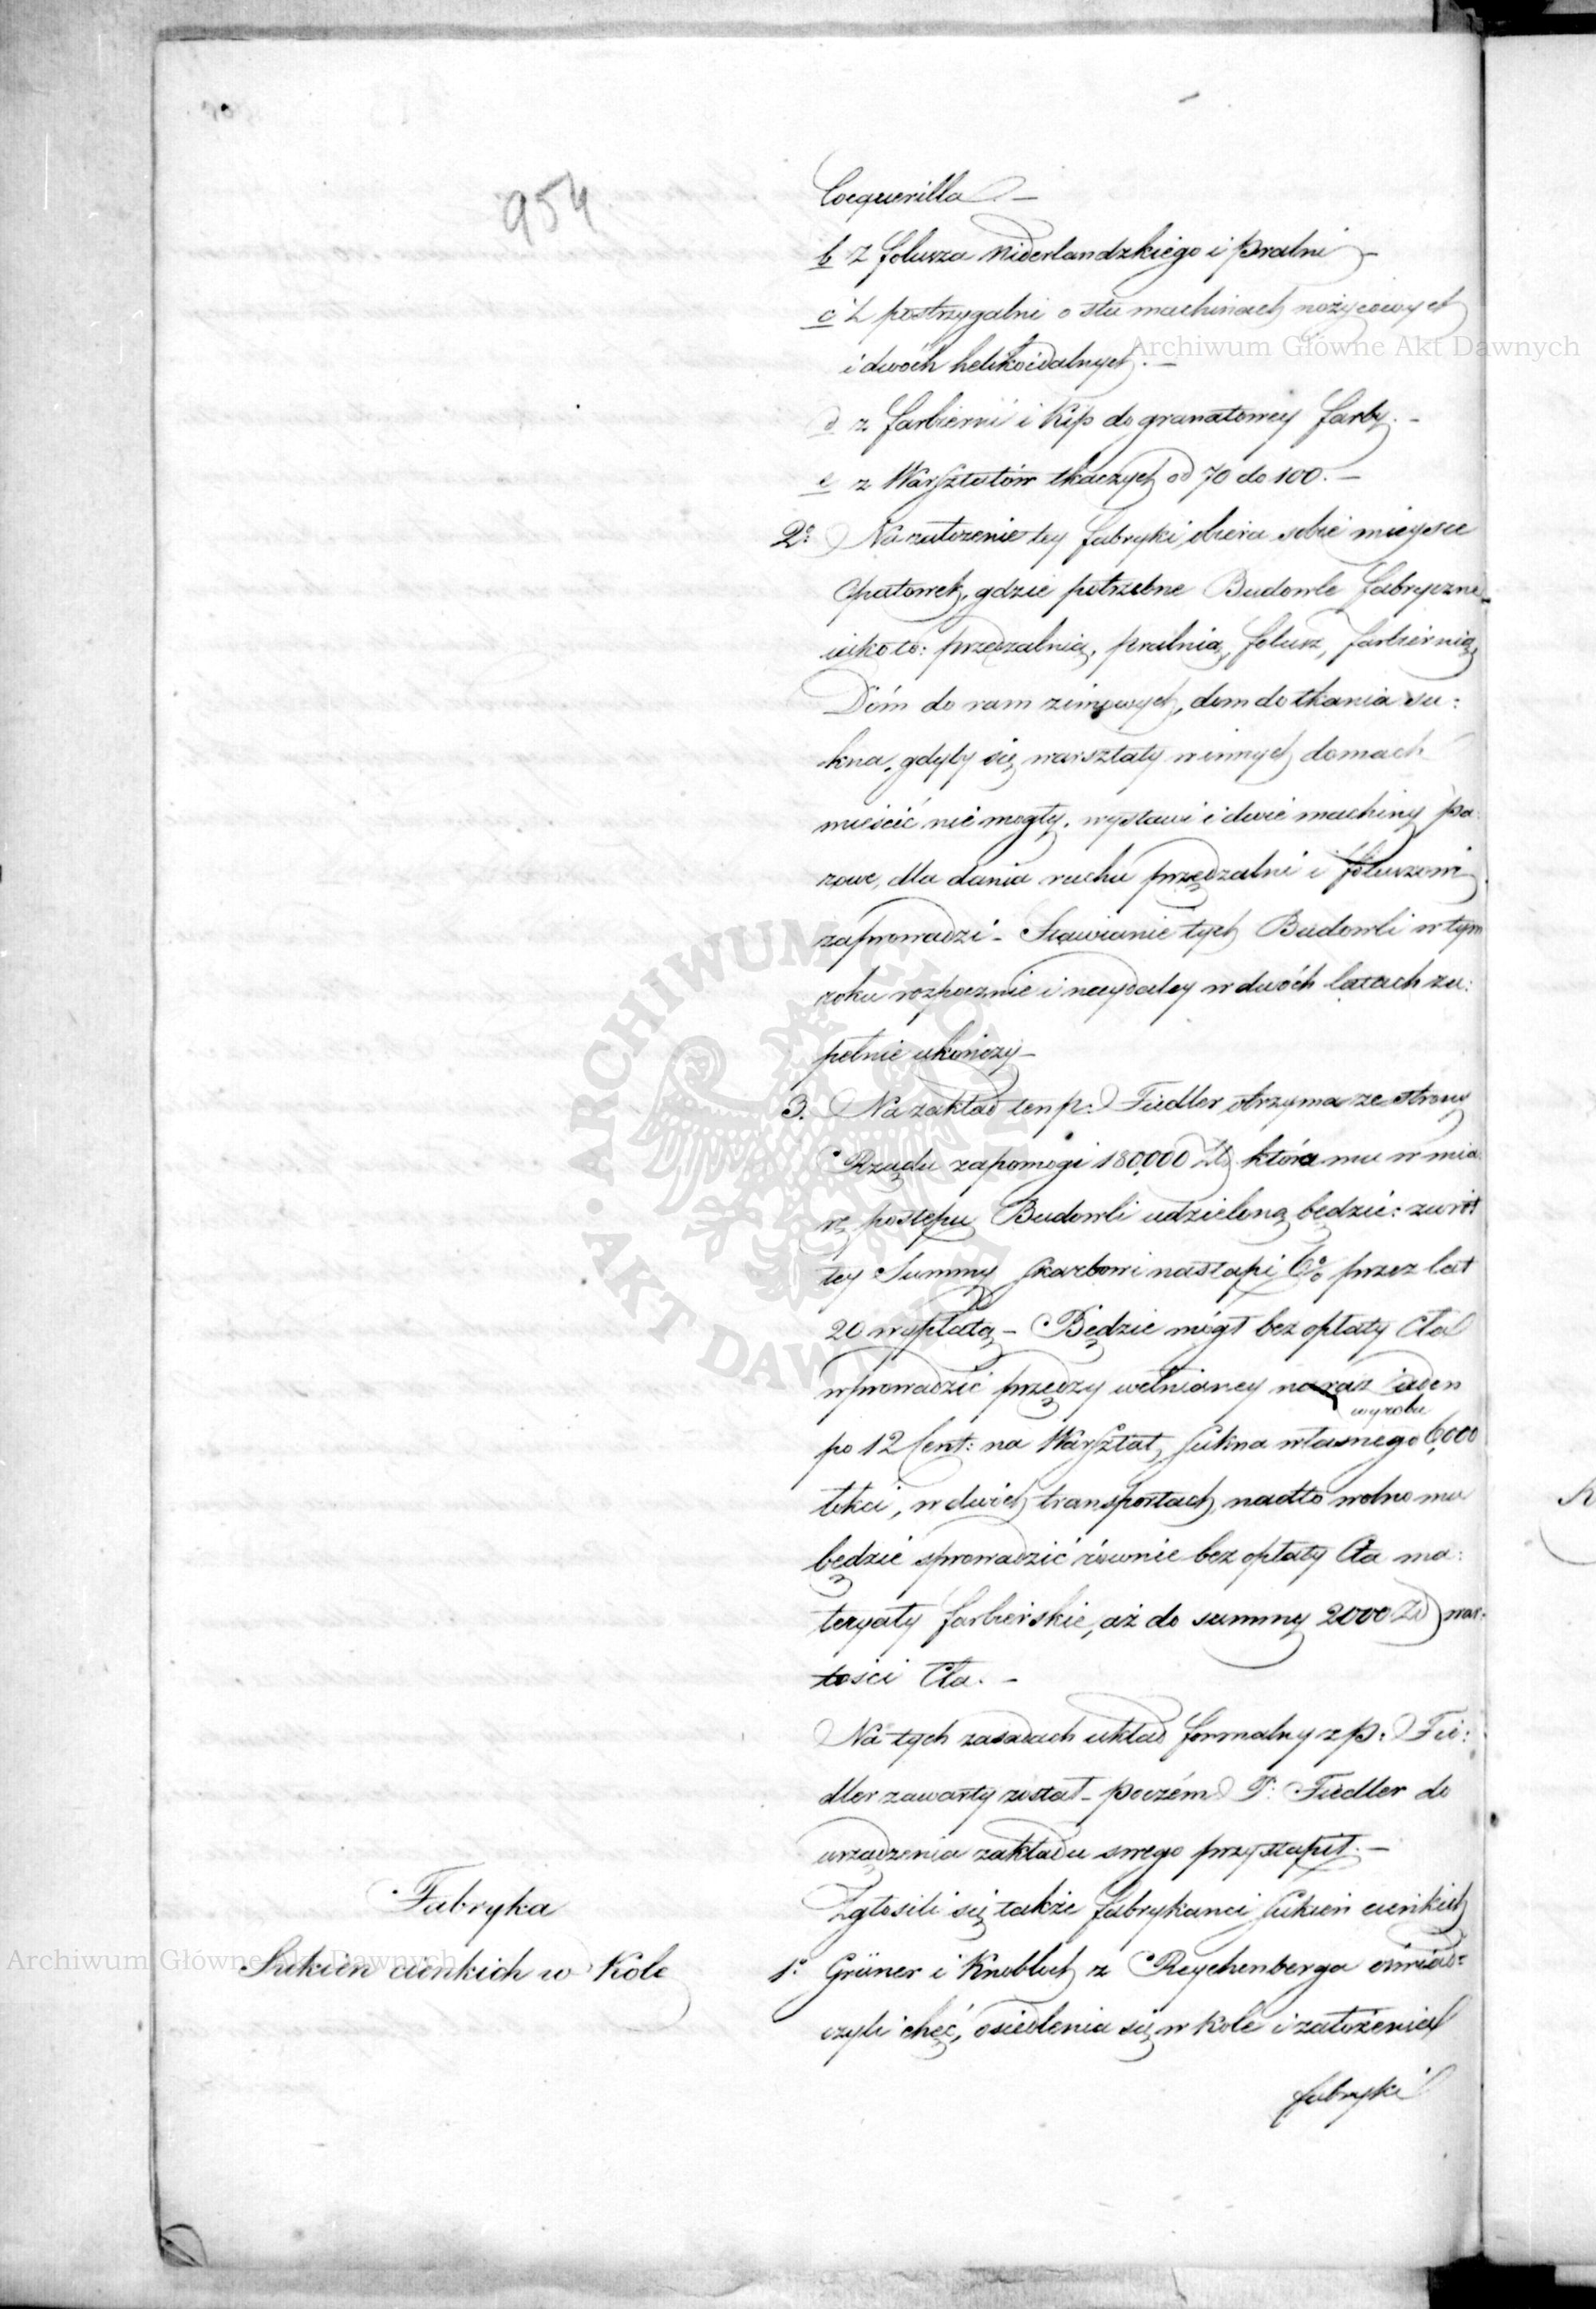 954
Cocquerilla –
b z folusza Niderlandzkiego i Pralni –
c z postrzygalni o stu machinach nożycowych
i dwóch helikoidalnych. –
d z farbierni i Kip do granatowey farby. –
e z Warsztatów tkaczych od 70 do 100. –
2º Na założenie tey fabryki obiera sobie mieysce
Opatowek, gdzie potrzebne Budowle fabryczne
iako to: przędzalnią, pralnią, folusz, farbiernią,
Dóm do ram zimowych, dom do tkania su:
kna, gdyby się warsztaty w innych domach
mieścić nie mogły, wystawi i dwie machiny pa:
rowe, dla dania ruchu przędzalni i foluszowi
zaprowadzi – Stawianie tych Budowli w tym
roku rozpocznie i naydaley w dwóch latach zu:
pełnie ukończy –
3. Na zakład ten p. Fiedler otrzyma ze strony
Rządu zapomogi 180,000 Zł która mu w mia:
rę postępu Budowli udzieloną będzie: zwrót
tey Summy Skarbowi nastąpi 6% przez lat
20 wypłatą – Będzie mógł bez opłaty Cła
wprowadzić przędzy wełnianey na raz ieden
po 12 Cent: na Warsztat, Sukna własnego wyrobu 6,000
łokci, w dwóch transportach, nadto wolno mu
będzie sprowadzić równie bez opłaty Cła ma:
teryały farbierskie, aż do summy 2000 Zł war:
tości Cła. –
Na tych zasadach układ formalny z p: Fie:
dler zawarty został – poczém P. Fiedler do
urządzenia zakładu swego przystąpił. –
Zgłosili się także fabrykanci Sukień cieńkich
Fabryka
Sukien cienkich w Kole
1º Grüner i Knobloch z Reychenberga oświad:
czyli chęć, osiedlenia się w Kole i założenia
fabryki
Archiwum Główne Akt Dawnych
Archiwum Główne Akt Dawnych
ARCHIWUM GŁÓWNE AKT DAWNYCH